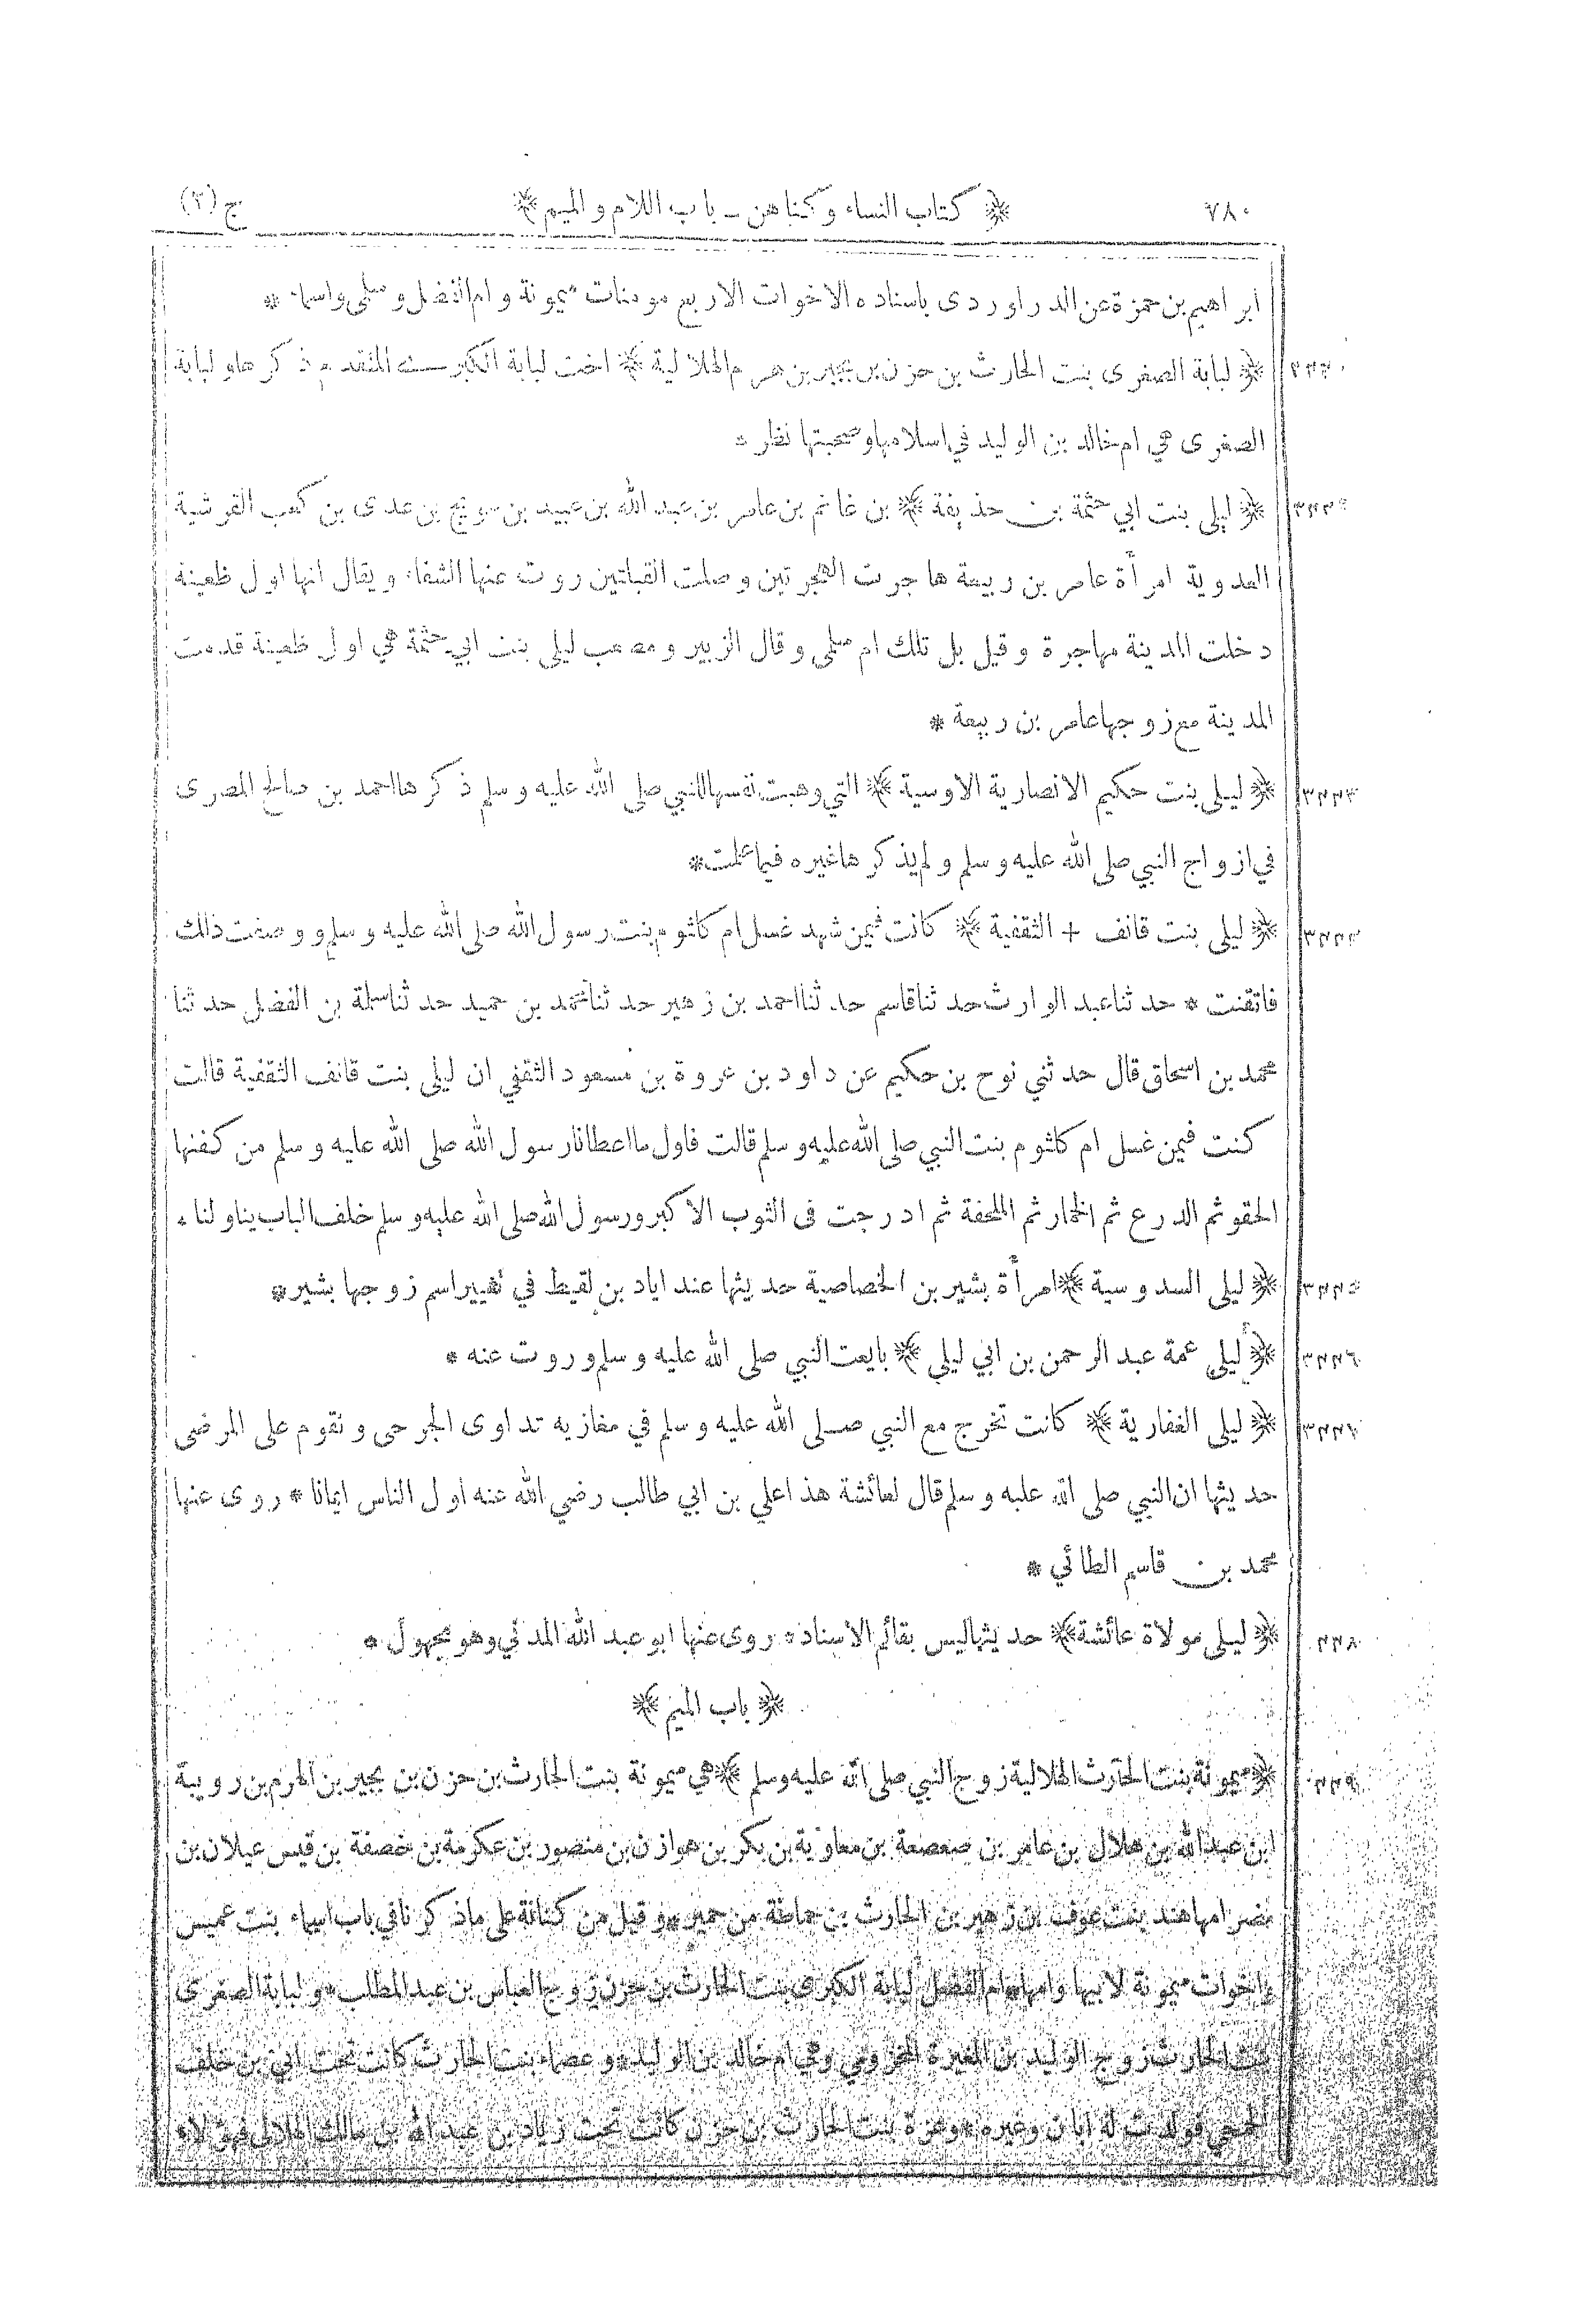 ٧٨٠ ﴿ كتاب النساء وكناهن ــ باب اللام والميم ﴾ ج (٢)
ابراهيم بن حمزة عن الدراوردى باسناده الاخوات الاربع مومنات ميمونة وام الفضل وسلمى واسماء *
﴿ لبابة الصغرى بنت الحارث بن حزن بن بجير بن هرم الهلالية ﴾ اخت لبابة الكبرى المتقدم ذكرها ولبابة
الصغرى هي ام خالد بن الوليد في اسلامها وصحبتها نظر *
﴿ ليلى بنت ابي حثمة بن حذيفة ﴾ بن غانم بن عامر بن عبد الله بن عبيد بن عويج بن عدى بن كعب القرشية
العدوية امرأة عامر بن ربيعة هاجرت الهجرتين وصلت القبلتين روت عنها الشفاء ويقال انها اول ظعينة
دخلت المدينة مهاجرة وقيل بل تلك ام سلمى وقال الزبير ومصعب ليلى بنت ابي حثمة هي اول ظعينة قدمت
المدينة مع زوجها عامر بن ربيعة *
٣٢٣٣ ﴿ ليلى بنت حكيم الانصارية الاوسية ﴾ التي وهبت نفسها للنبي صلى الله عليه وسلم ذكرها احمد بن صالح المصرى
في ازواج النبي صلى الله عليه وسلم ولم يذكرها غيره فيما علمت *
﴿ ليلى بنت قانف + الثقفية ﴾ كانت فيمن شهد غسل ام كلثوم بنت رسول الله صلى الله عليه وسلم ووصفت ذلك
فاتقنت * حدثنا عبد الوارث حدثنا قاسم حدثنا احمد بن زهير حدثنا محمد بن حميد حدثنا سلمة بن الفضل حدثنا
محمد بن اسحاق قال حدثني نوح بن حكيم عن داود بن عروة بن مسعود الثقفي ان ليلى بنت قانف الثقفية قالت
كنت فيمن غسل ام كلثوم بنت النبي صلى الله عليه وسلم قالت فاول ما اعطانا رسول الله صلى الله عليه وسلم من كفنها
الحقو ثم الدرع ثم الخمار ثم الملحفة ثم ادرجت فى الثوب الاكبر ورسول الله صلى الله عليه وسلم خلف الباب يناولنا *
﴿ ليلى السدوسية ﴾ امرأة بشير بن الخصاصية حديثها عند اياد بن لقيط في تغيير اسم زوجها بشير *
٣٢٣٦ ﴿ ليلى عمة عبد الرحمن بن ابي ليلى ﴾ بايعت النبي صلى الله عليه وسلم وروت عنه *
٣٢٣٧ ﴿ ليلى الغفارية ﴾ كانت تخرج مع النبي صلى الله عليه وسلم في مغازيه تداوى الجرحى وتقوم على المرضى
حديثها ان النبي صلى الله عليه وسلم قال لعائشة هذا علي بن ابي طالب رضي الله عنه اول الناس ايمانا * روى عنها
محمد بن قاسم الطائي *
﴿ ليلى مولاة عائشة ﴾ حديثها ليس بقائم الاسناد * روى عنها ابو عبد الله المدني وهو مجهول *
﴿ باب الميم ﴾
﴿ ميمونة بنت الحارث الهلالية زوج النبي صلى الله عليه وسلم ﴾ هي ميمونة بنت الحارث بن حزن بن بجير بن الهرم بن رويبة
ابن عبد الله بن هلال بن عامر بن صعصعة بن معاوية بن بكر بن هوازن بن منصور بن عكرمة بن خصفة بن قيس عيلان بن
مضر امها هند بنت عوف بن زهير بن الحارث بن حماطة من حمير * وقيل من كنانة على ما ذكرنا في باب اسماء بنت عميس
واخوات ميمونة لابيها وامها * ام الفضل لبابة الكبرى بنت الحارث بن حزن زوج العباس بن عبد المطلب * ولبابة الصغرى
بنت الحارث زوج الوليد بن المغيرة المخزومي وهي ام خالد بن الوليد * وعصماء بنت الحارث كانت تحت ابي بن خلف
الجمحي فولدت له ابان وغيره * وعزة بنت الحارث بن حزن كانت تحت زياد بن عبد الله بن مالك الهلالي فهؤلاء